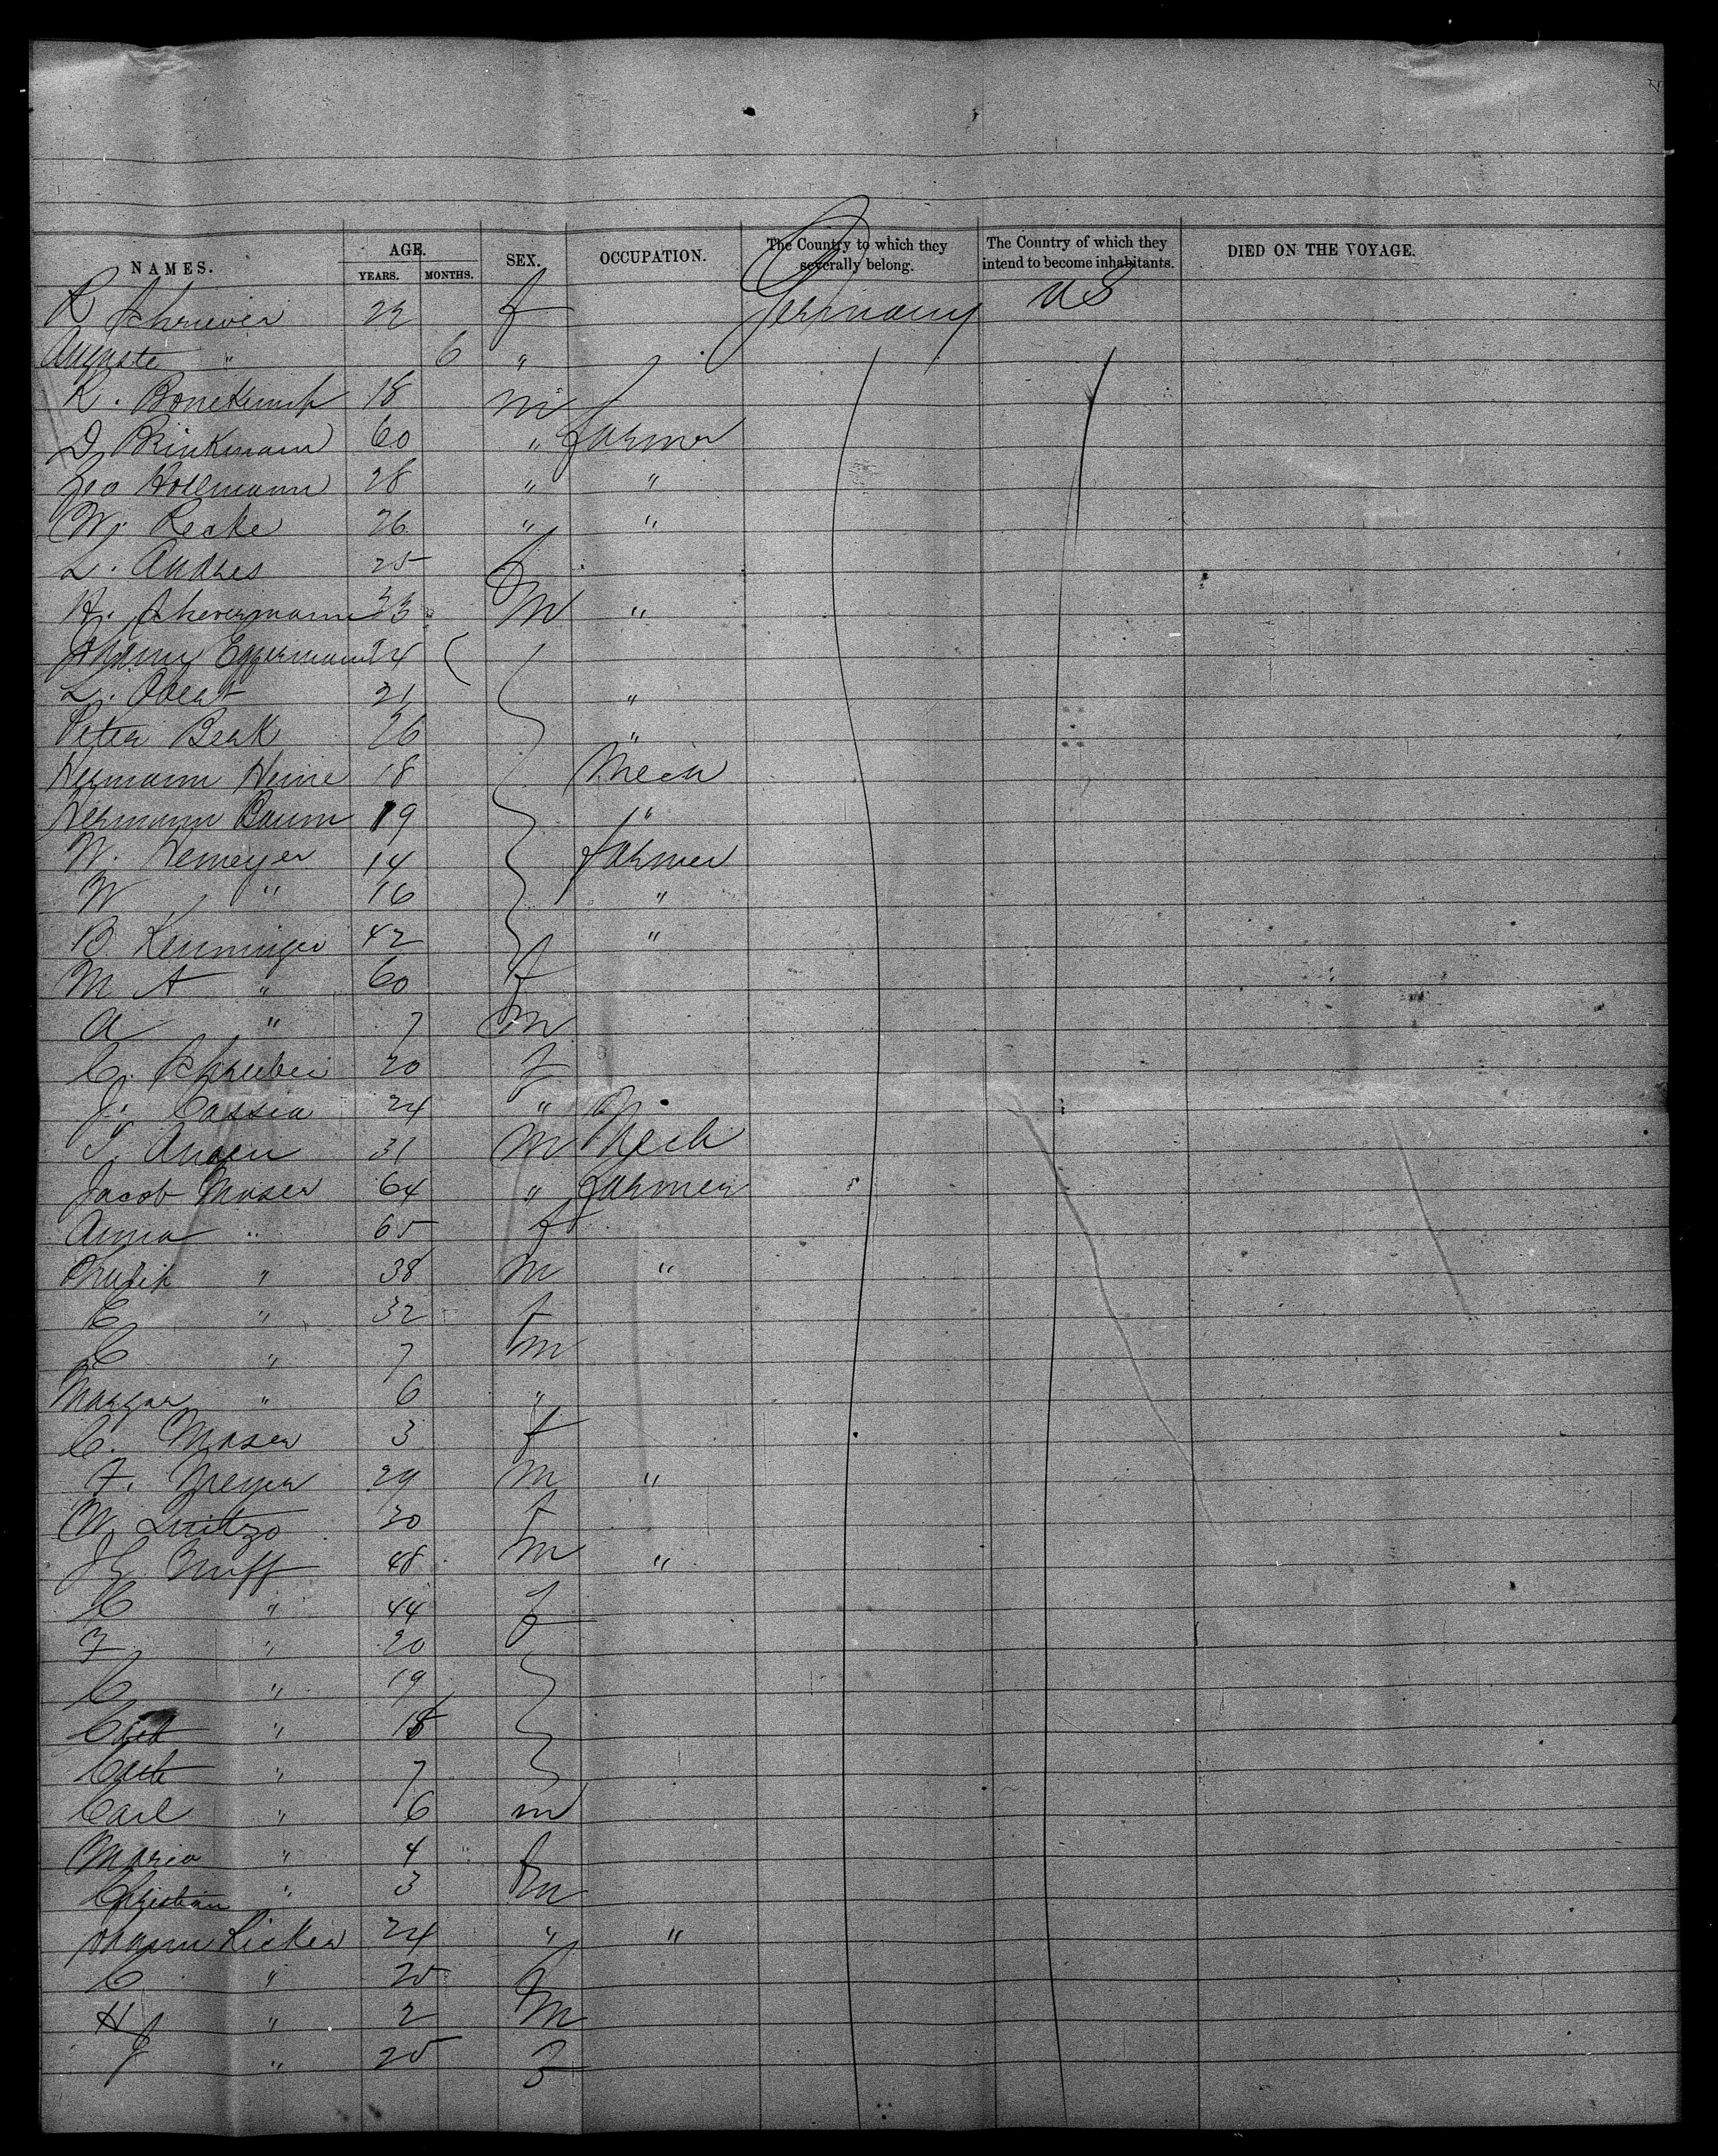 NAMES. AGE. YEARS. MONTHS. SEX. OCCUPATION. The Country to which they severally belong. The Country of which they intend to become inhabitants. DIED ON THE VOYAGE.
R Schriever 22 f Germany US
Auguste " 6 "
R. Bonekemp 18 m
D Brinkmann 60 " farmer
Geo Hollmann 28 " "
W. Recke 26 " "
L. Andres 25 f
H. Schevermann 33 m "
Johann Eggermann 24
L. Obert 21 "
Peter Berk 26 "
Hermann Heine 18 Mech
Hermann Baum 19 "
W. Nemeyer 14 farmer
W " 16 "
B. Kenninger 42 "
M A " 60 f
A " 7 m
C. Schreiber 20 f
J. Cassia 24 "
31 m Mech
Jacob Moser 64 " farmer
Anna " 65 f
" 38 m "
C " 32 f
C " 7 m
Margar " 6 "
C. Moser 3 f
F. Meyer 29 m "
W. 30 f
48 m "
C " 44 f
F " 20
C " 19
" 18
" 7
Carl " 6 m
Maria " 4 f
Christian " 3 m
Johann Ricker 24 " "
C " 25 f
H " 2 m
J " 25 f